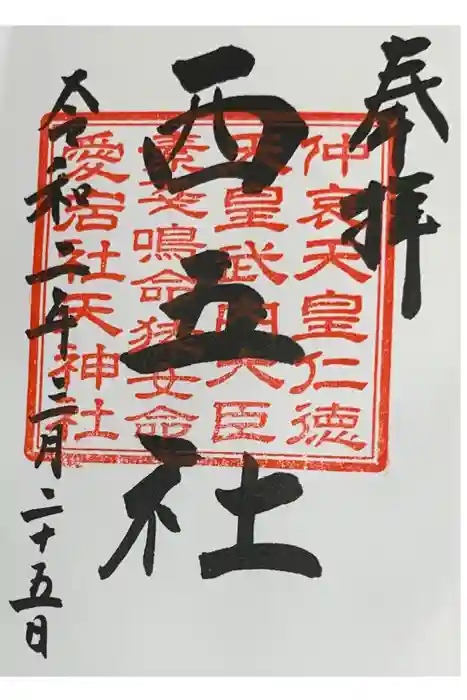 奉拝
西五社
仲哀天皇仁徳
天皇武内大臣
素戔鳴命猿女命
愛宕社天神社
令和二年三月二十五日